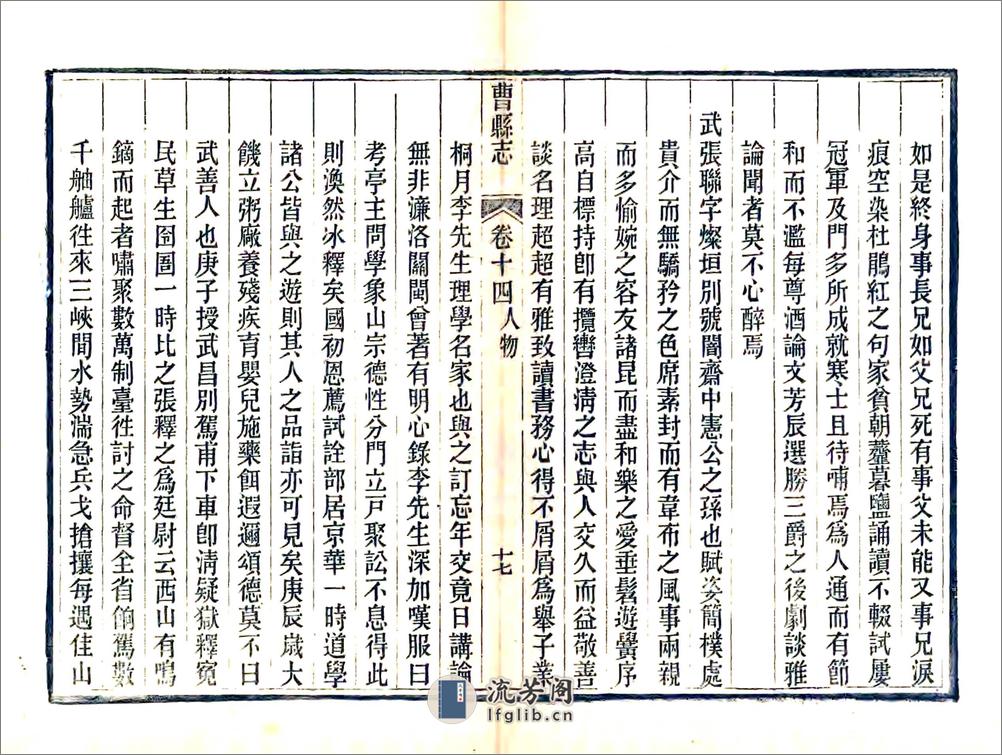 如是終身事長兄如父兄死有事父未能又事兄淚
痕空染杜鵑紅之句家貧朝虀暮鹽誦讀不輟試屢
冠軍及門多所成就寒士且待哺焉爲人通而有節
和而不濫每尊酒論文芳辰選勝三爵之後劇談雅
論聞者莫不心醉焉
武張聯字燦垣別號闇齋中憲公之孫也賦姿簡樸處
貴介而無驕矜之色席素封而有韋布之風事兩親
而多愉婉之容友諸昆而盡和樂之愛垂髫遊黌序
高自標持卽有攬轡澄淸之志與人交久而益敬善
談名理超超有雅致讀書務心得不屑屑爲舉子業
曹縣志 卷十四人物 十七
桐月李先生理學名家也與之訂忘年交竟日講論
無非濂洛關閩曾著有明心錄李先生深加嘆服曰
考亭主問學象山宗德性分門立戸聚訟不息得此
則渙然冰釋矣國初恩薦試詮部居京華一時道學
諸公皆與之遊則其人之品詣亦可見矣庚辰歲大
饑立粥廠養殘疾育嬰兒施藥餌遐邇頌德莫不曰
武善人也庚子授武昌別駕甫下車卽淸疑獄釋寃
民草生囹圄一時比之張釋之爲廷尉云西山有鳴
鏑而起者嘯聚數萬制臺徃討之命督全省餉駕數
千舳艫徃來三峽間水勢湍急兵戈搶攘每遇佳山
流芳阁
lfglib.cn